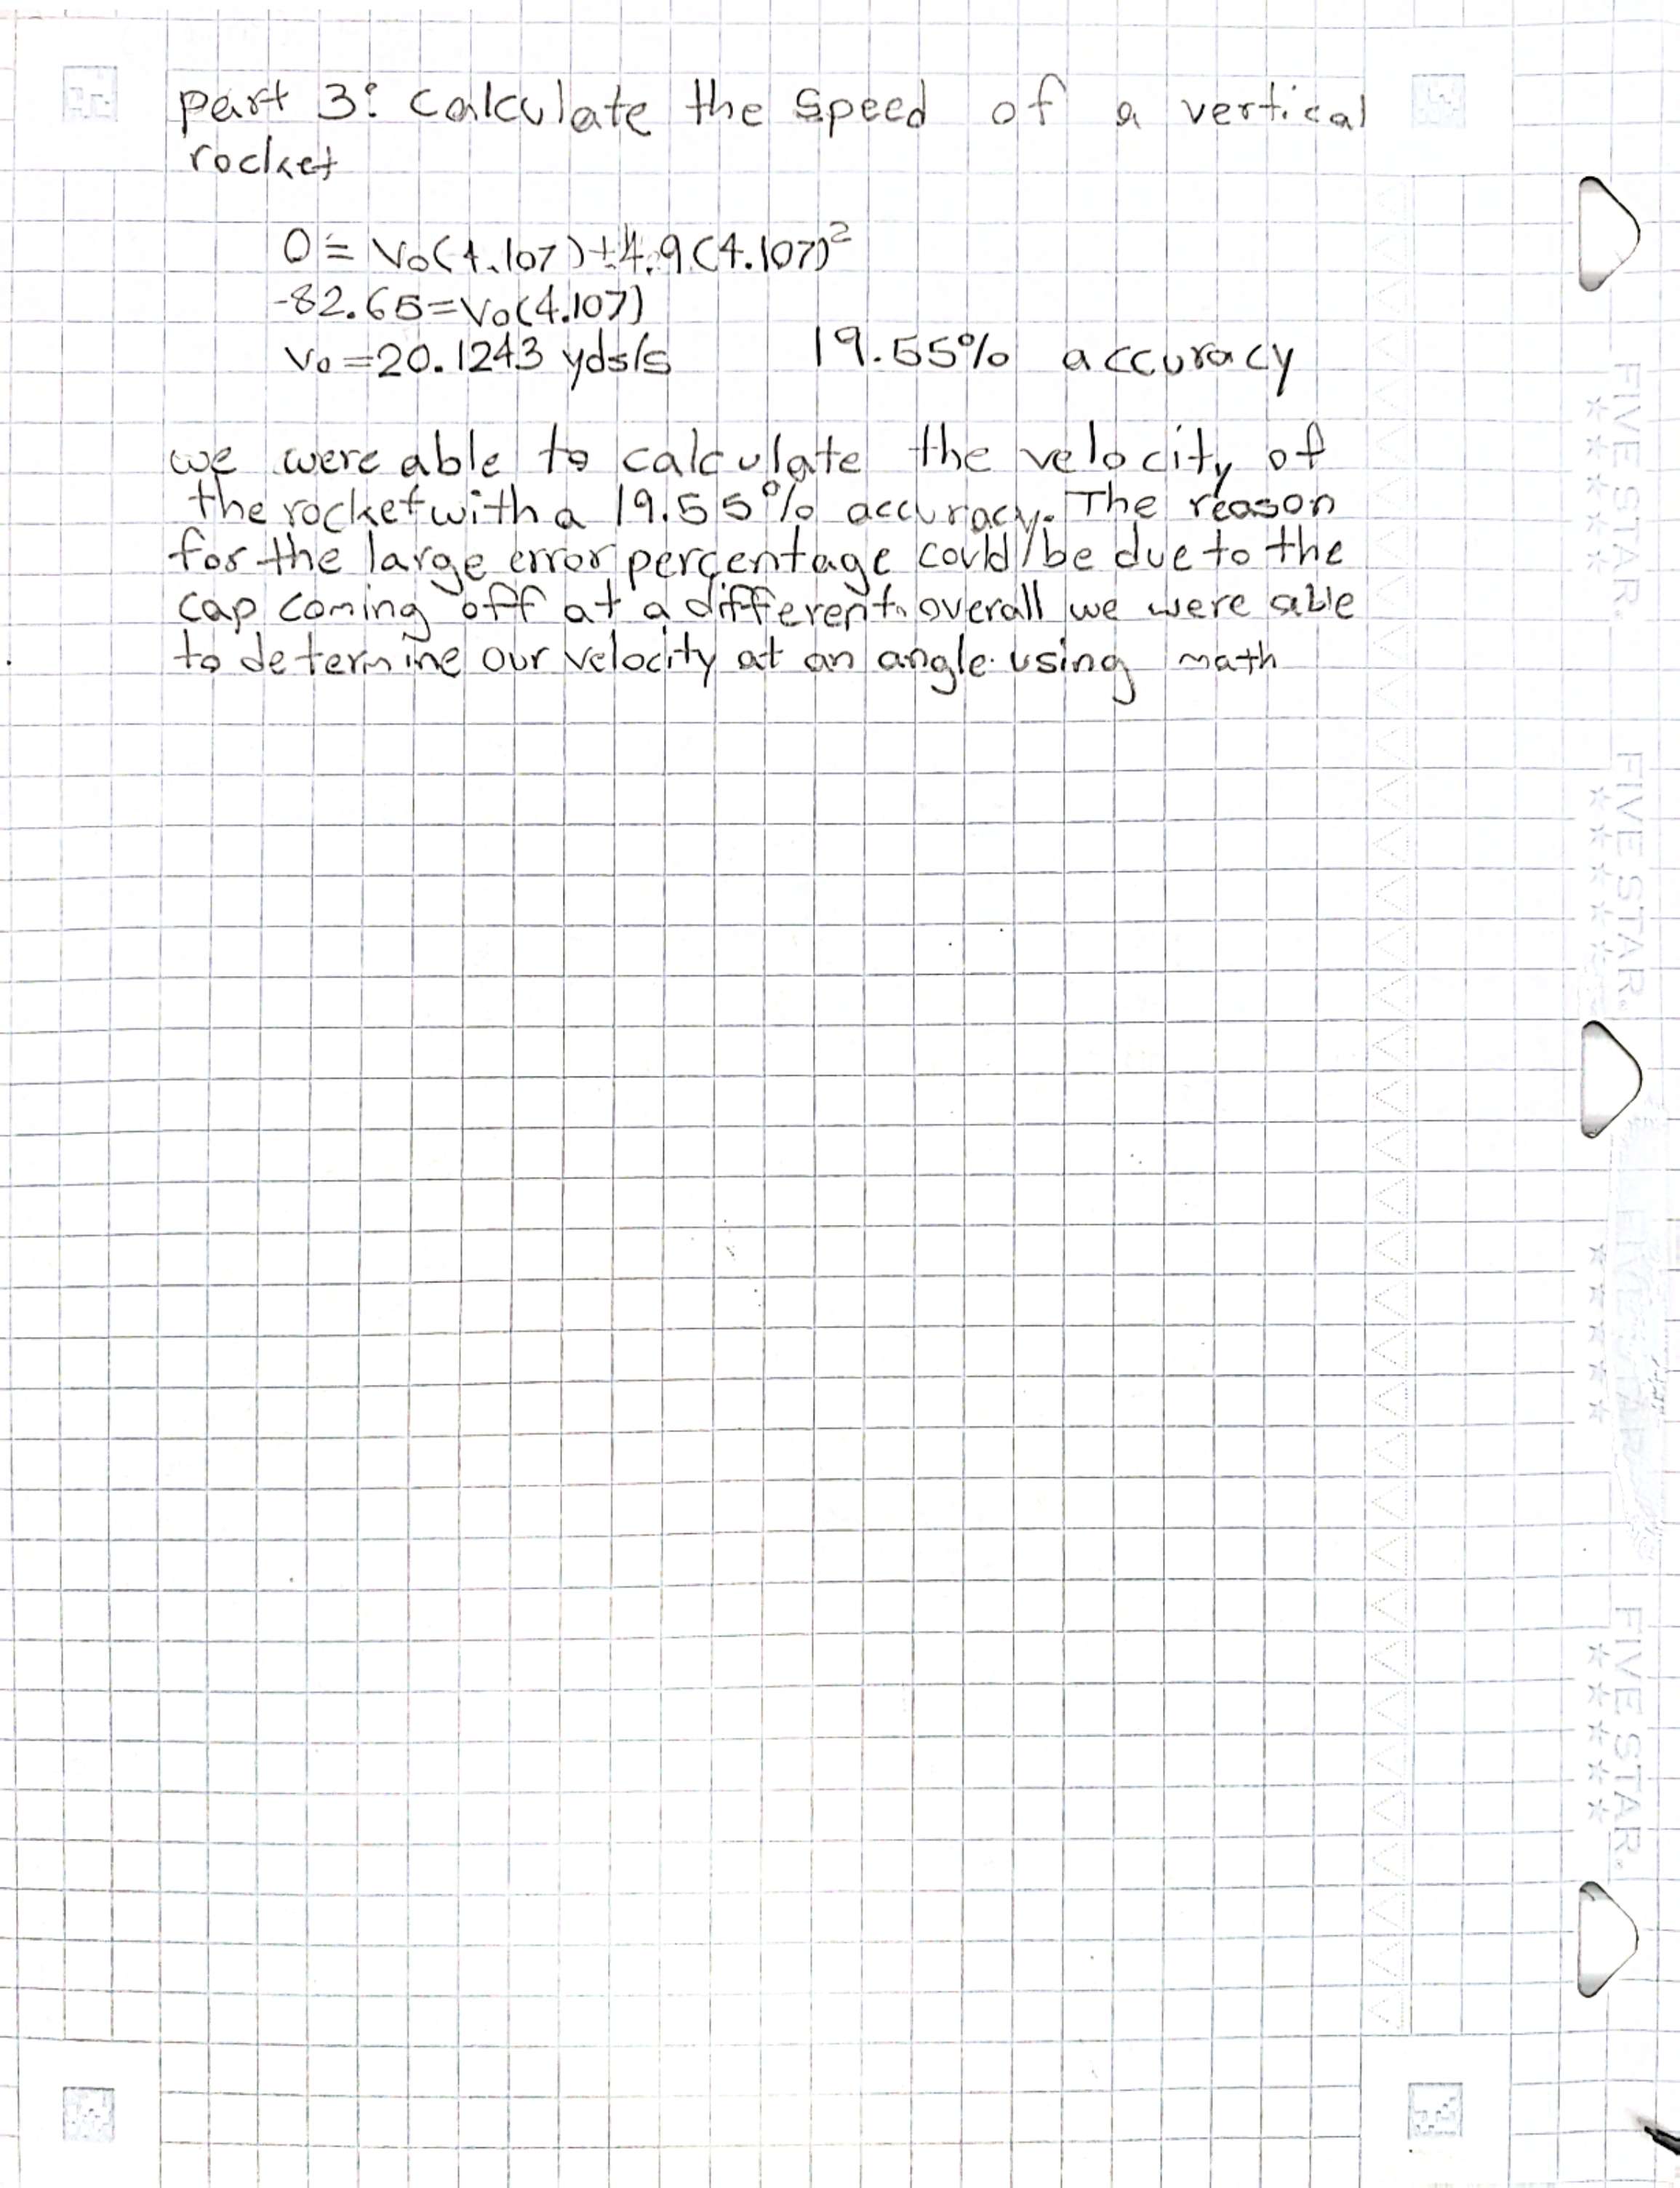 part 3: Calculate the speed of a vertical
rocket
0 = V₀(4.107)+-4.9(4.107)²
-82.65=V₀(4.107)
V₀=20.1243 yds/s 19.55% accuracy
we were able to calculate the velocity of
the rocket with a 19.55% accuracy. The reason
for the large error percentage could be due to the
cap coming off at a different. overall we were able
to determine our velocity at an angle using math
FIVE STAR.
★★★★★
FIVE STAR.
★★★★★
FIVE STAR.
★★★★★
FIVE STAR.
★★★★★